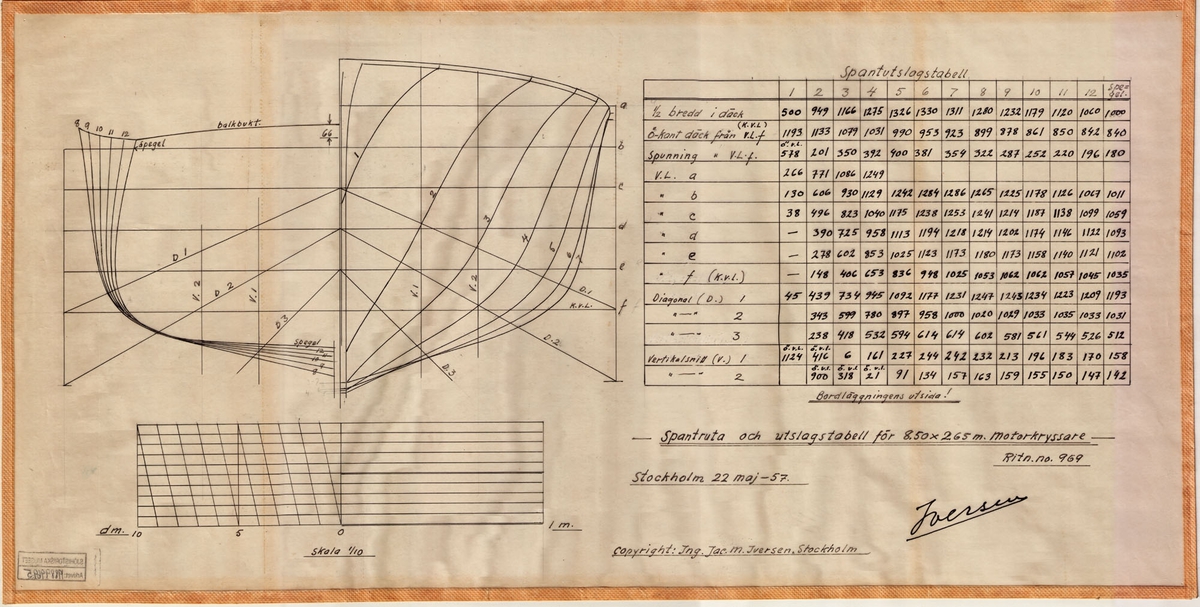 8 9 10 11 12
Spegel
balkbukt.
66
a
b
c
d
e
f
1
2
3
4
5
6
7
D 1
V. 2
D 2
V. 1
D.3
V.1
V.2
D.1
K.V.L.
D.2.
D.3.
Spegel
dm. 10 5 0 1 m.
Skala 1/10
Spantutslagstabell
1 2 3 4 5 6 7 8 9 10 11 12 Spegel.
1/2 bredd i däck 500 949 1166 1275 1326 1330 1311 1280 1232 1179 1120 1060 1000
Ö-kant däck från V.L.f (K.V.L) 1193 1133 1079 1031 990 953 923 899 878 861 850 842 840
Spunning " V.L.f. ö.v.l. 578 201 350 392 400 381 354 322 287 252 220 196 180
V.L. a 266 771 1086 1249
" b 130 606 930 1129 1242 1284 1286 1265 1225 1178 1126 1067 1011
" c 38 496 823 1040 1175 1238 1253 1241 1214 1187 1138 1099 1059
" d — 390 725 958 1113 1194 1218 1214 1202 1174 1146 1122 1093
" e — 278 602 853 1025 1123 1173 1180 1173 1158 1140 1121 1102
" f (K.v.l.) — 148 406 653 836 948 1025 1053 1062 1062 1057 1045 1035
Diagonal (D.) 1 45 439 734 945 1092 1177 1231 1247 1245 1234 1223 1209 1193
" — " 2 343 599 780 897 958 1000 1020 1029 1033 1035 1033 1031
" — " 3 238 418 532 594 614 614 602 581 561 544 526 512
Vertikalsnitt (V.) 1 ö.v.l. 1124 ö.v.l. 416 6 161 227 244 242 232 213 196 183 170 158
" — " 2 ö.v.l. 900 ö.v.l. 318 ö.v.l. 21 91 134 157 163 159 155 150 147 142
Bordläggningens utsida!
— Spantruta och utslagstabell för 8.50 × 2.65 m. Motorkryssare —
Ritn.no. 969
Stockholm 22 maj – 57.
Iversen
Copyright: Ing. Jac. M. Iversen, Stockholm